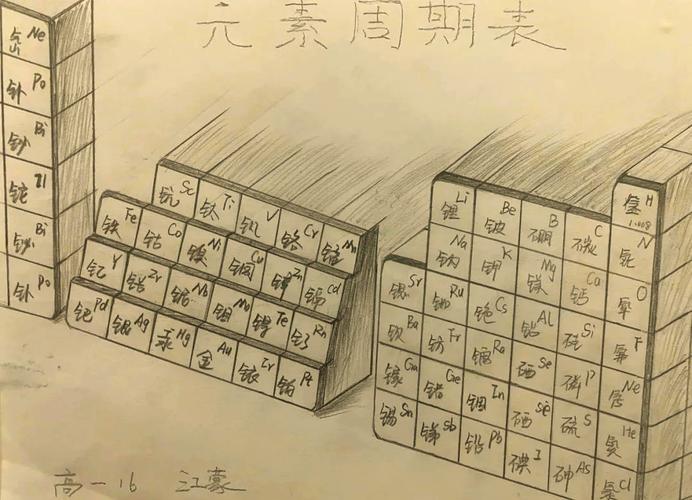 元素周期表
Ne
Po
钋
Bi
铊 Tl
Bi
Po
钋
Sc 钪
Ti 钛
V 钒
Cr 铬
Mn 锰
Fe 铁
Co 钴
Ni 镍
Cu 铜
Zn 锌
Cd 镉
Y 钇
Zr 锆
Nb 铌
Mo 钼
Te
Rn
Pd 钯
Ag 银
Hg 汞
Au 金
Ir 铱
Pt 铂
H 氢 1.008
Li 锂
Be 铍
B 硼
C 碳
N
Na 钠
K 钾
Mg 镁
Ca 钙
O
Sr 锶
Ru
Cs 铯
Al 铝
Si 硅
F 氟
Ba 钡
Fr 钫
Ra 镭
Se 硒
P 磷
Ne
Ga 镓
Ge 锗
In 铟
硒
S 硫
He
Sn 锡
Sb 锑
Pb 铅
I 碘
As 砷
Cl
高一16 江豪